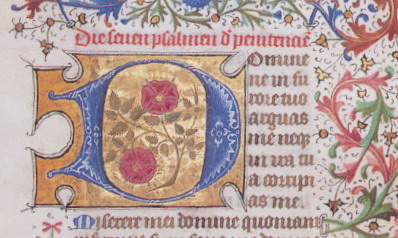 Die seuen psalmen d' penitencie
Domine
ne in fu
rore tuo
arguas
me neqz
in ira tu
a corripi
as me.
Miserere mei domine quoniam